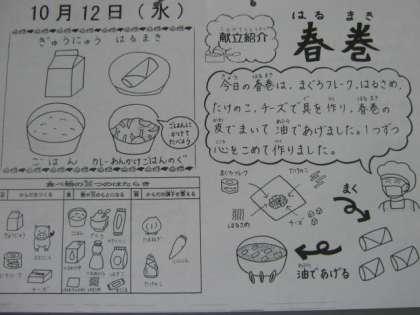 10月12日(水)
ぎゅうにゅう はるまき
ごはんに
かけて
たべよう
ごはん カレーあんかけごはんのぐ
食べ物の三つのはたらき
ぎゅうにゅう
ごはん
チーズ
たけのこ
献立紹介
はるまき
春巻
今日の春巻は、まぐろフレーク、はるさめ、
たけのこ、チーズで具を作り、春巻の
皮でまいて油であげました。1つずつ
心をこめて作りました。
まぐろフレーク
たけのこ
はるさめ
チーズ
まく
油であげる